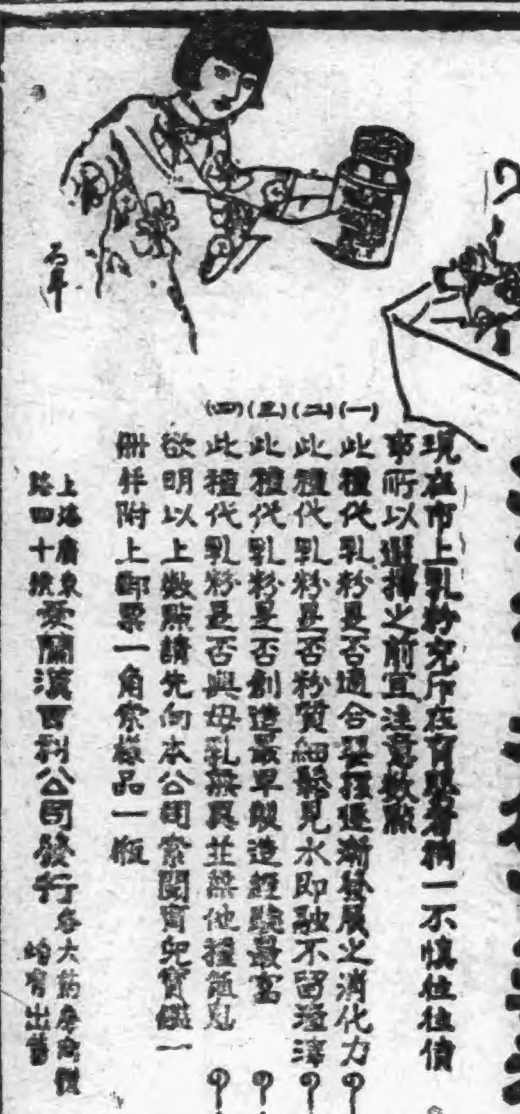 現在市上乳粉充斥在育嬰者稍一不慎往往僨
事所以選擇之前宜注意數點
(一)此種代乳粉是否適合嬰孩逐漸發展之消化力
(二)此種代乳粉是否粉質細鬆見水即融不留渣滓
(三)此種代乳粉是否創造最早製造經驗最富
(四)此種代乳粉是否與母乳無異並無他種
欲明以上數點請先向本公司索閱育兒寶鑑一
冊并附上郵票一角索樣品一瓶
上海廣東路四十號愛蘭漢百利公司發行各大藥房商號均有出售